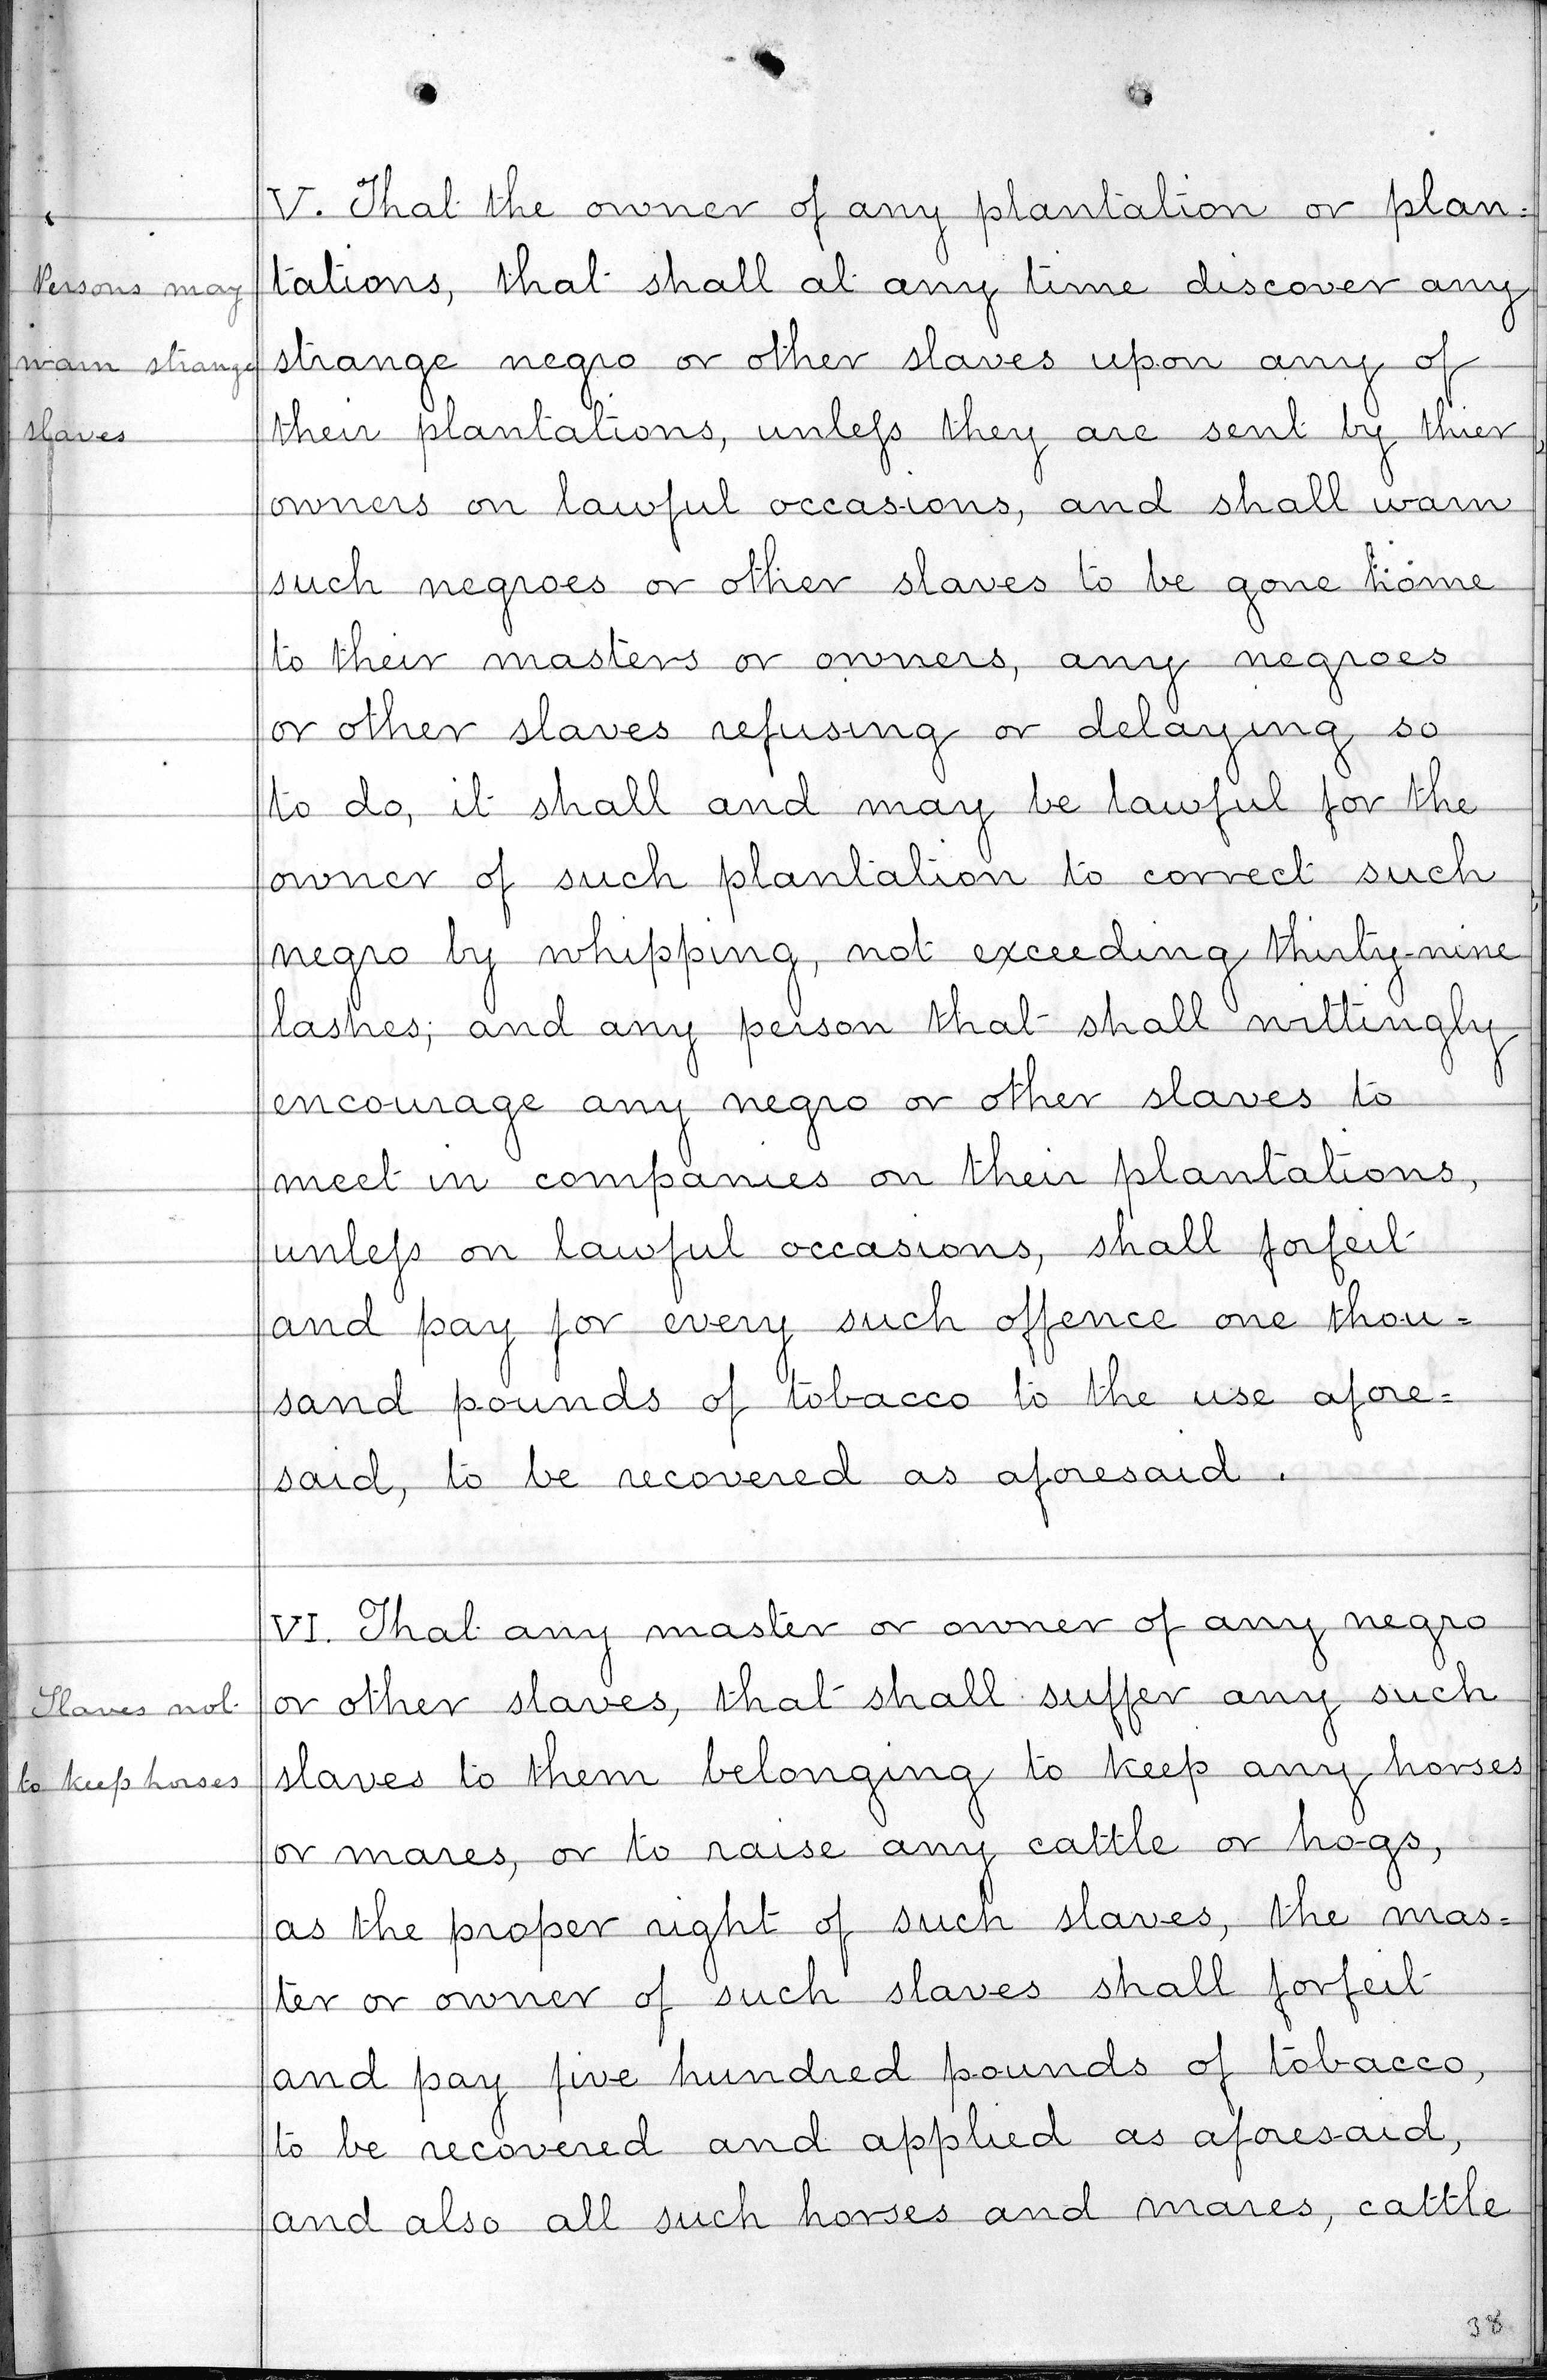 V. That the owner of any plantation or plan=
Persons may
tations, that shall at any time discover any
warn strange
strange negro or other slaves upon any of
slaves
their plantations, unleſs they are sent by thier
owners on lawful occasions, and shall warn
such negroes or other slaves to be gone home
to their masters or owners, any negroes
or other slaves refusing or delaying so
to do, it shall and may be lawful for the
owner of such plantation to correct such
negro by whipping, not exceeding thirty-nine
lashes; and any person that shall wittingly
encourage any negro or other slaves to
meet in companies on their plantations,
unleſs on lawful occasions, shall forfeit
and pay for every such offence one thou=
sand pounds of tobacco to the use afore=
said, to be recovered as aforesaid.
VI. That any master or owner of any negro
Slaves not
or other slaves, that shall suffer any such
to keep horses
slaves to them belonging to keep any horses
or mares, or to raise any cattle or hogs,
as the proper right of such slaves, the mas=
ter or owner of such slaves shall forfeit
and pay five hundred pounds of tobacco,
to be recovered and applied as aforesaid,
and also all such horses and mares, cattle
38